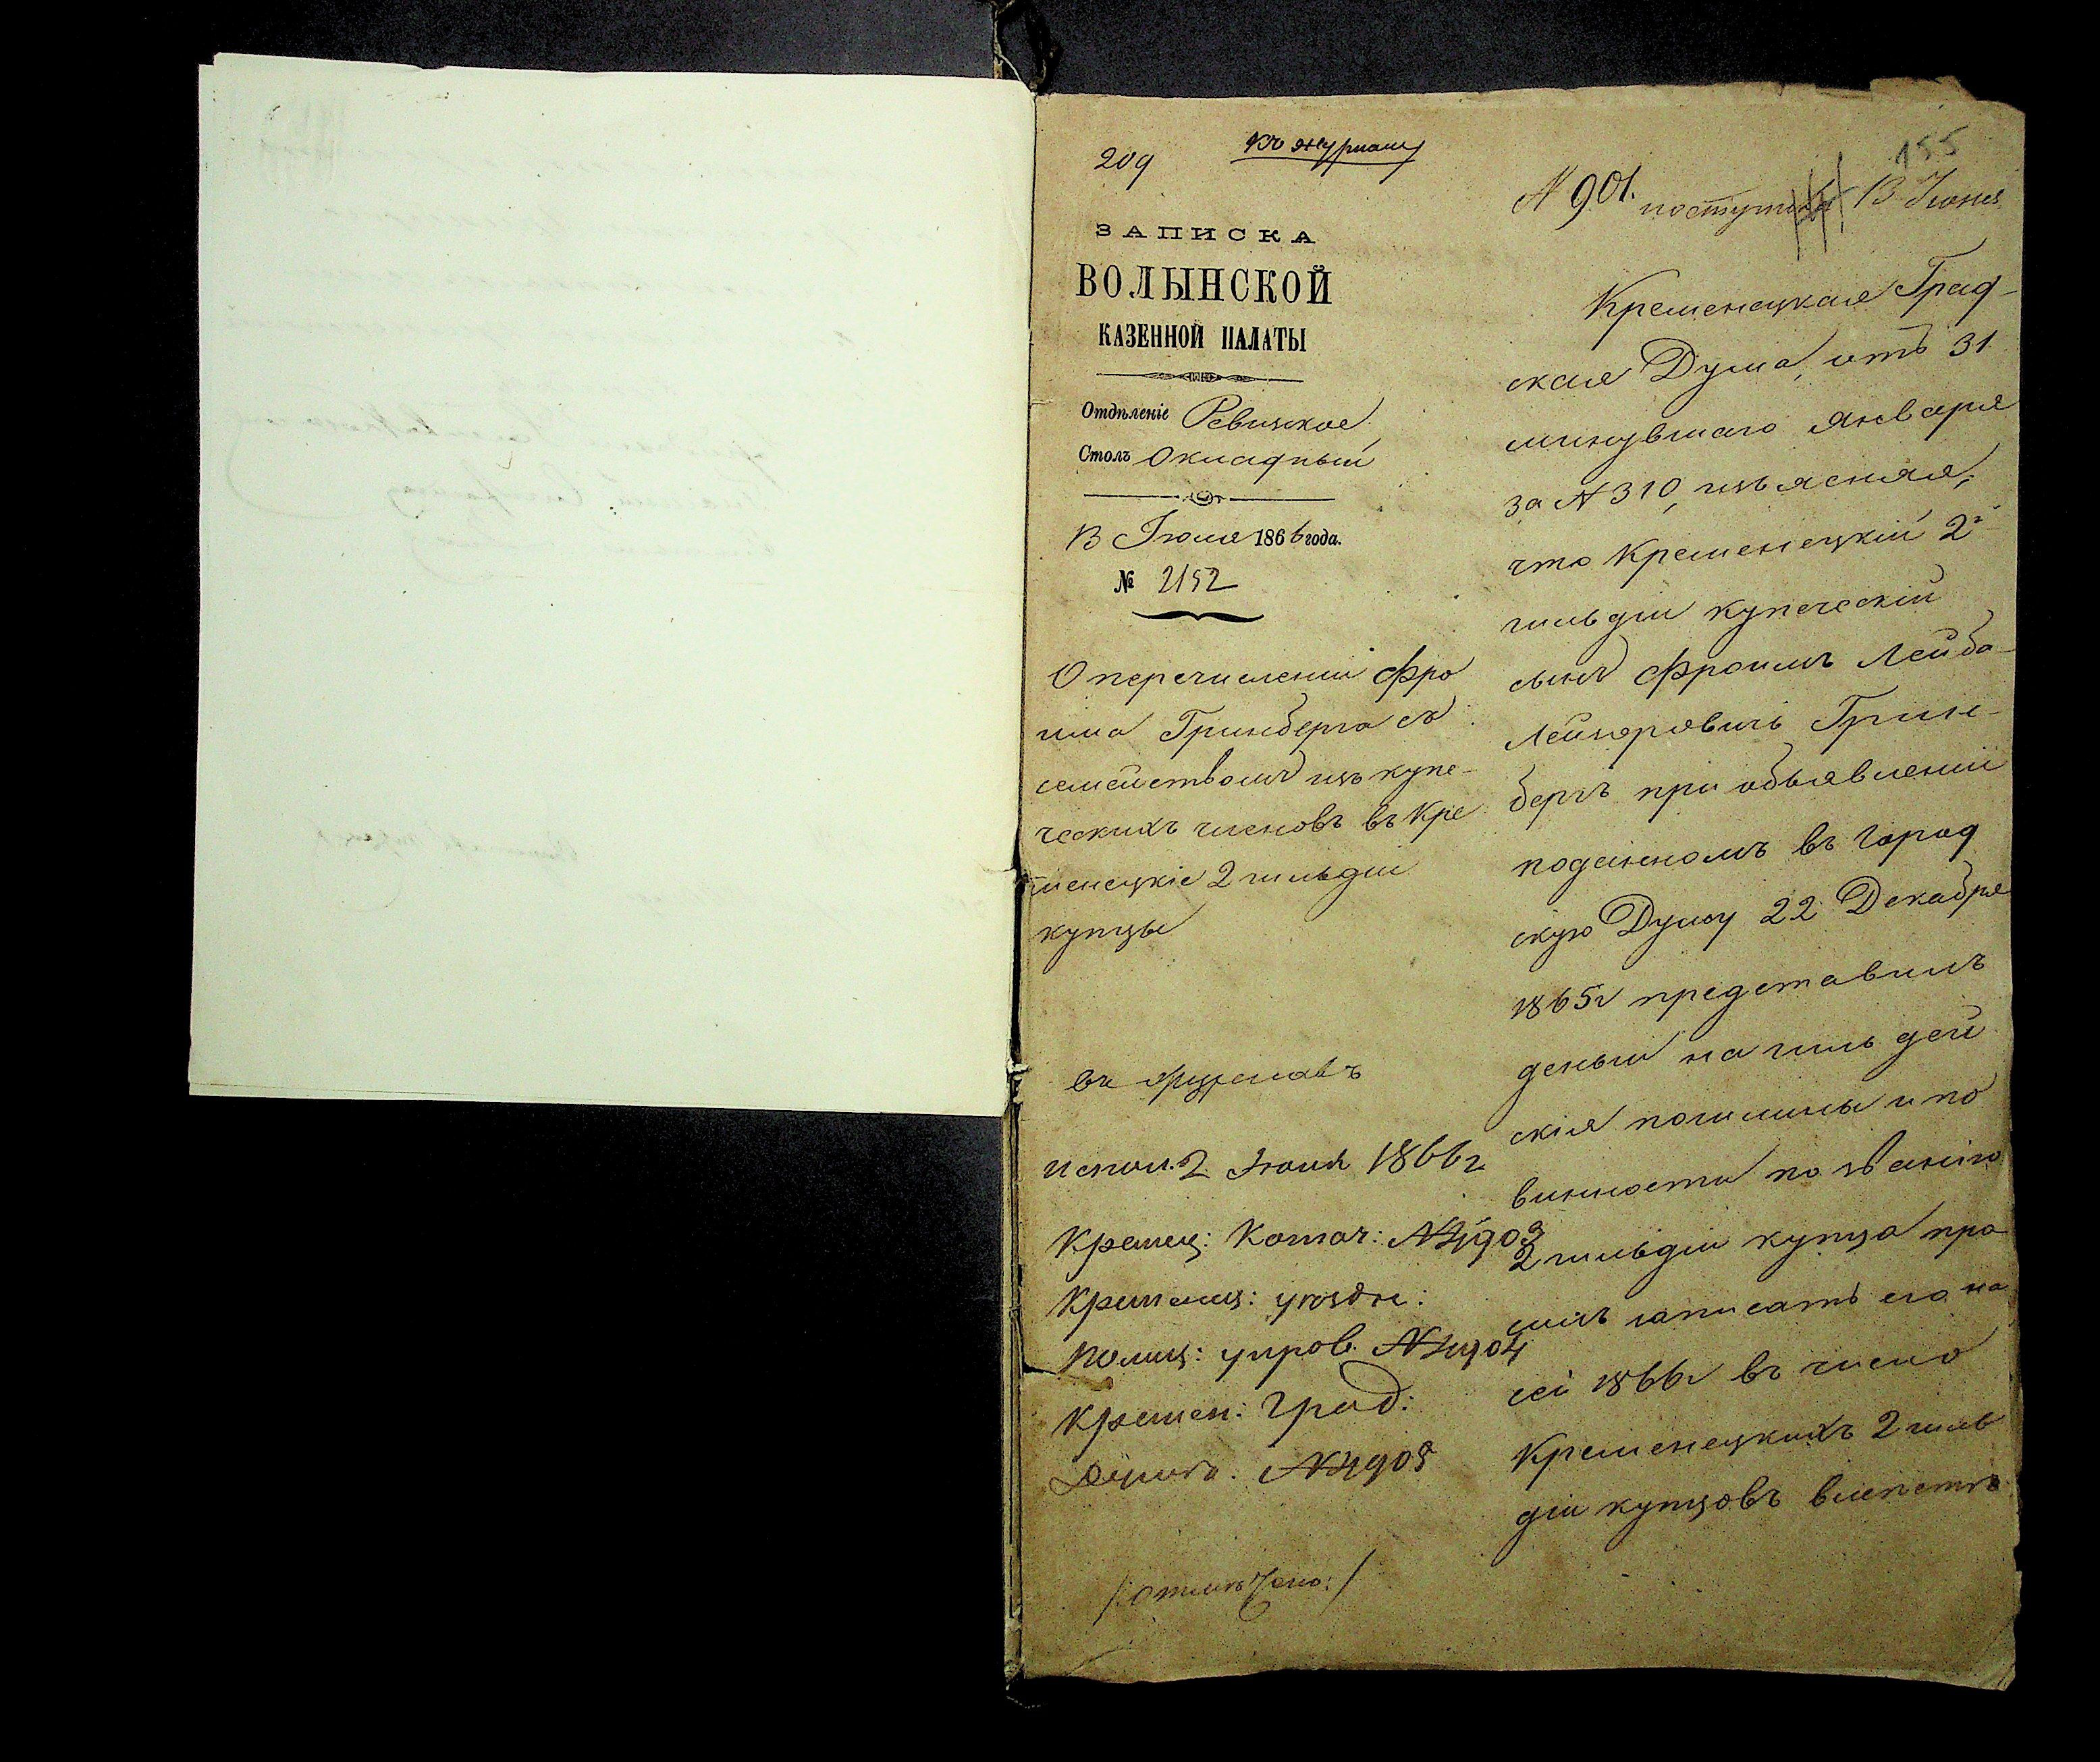 209
къ журналу
155
N 901. поступила 13 Іюня
ЗАПИСКА
ВОЛЫНСКОЙ
КАЗЕННОЙ ПАЛАТЫ
Отдѣленіе Ревизское
Столъ Окладный
13 Іюня 1866 года.
№ 2152
О перечисленіи Фро
има Гринберга съ
семействомъ изъ купе-
ческихъ членовъ въ Кре
менецкіе 2 гильдіи
купцы
испол. 2 Іюля 1866 г
Кремец: Казнач: N 4903
Кременец: уѣздн:
Полиц: управ. N 4904
Кремен: Град:
Думѣ. N 4905
Кременецкая Град-
ская Дума, отъ 31
минувшаго Января
за N 310, изъясняя,
что Кременецкій 2й
гильдіи купеческій
сынъ Фроимъ Лейба-
Лейзоровичъ Грин-
бергъ при объявленіи
поданномъ въ Город
скую Думу 22 Декабря
1865г представилъ
деньги на гильдей
скія пошлины и по
винности по званію
2 гильдіи купца про
силъ записать его на
сей 1866г въ число
Кременецкихъ 2 гиль
діи купцовъ вмѣстѣ